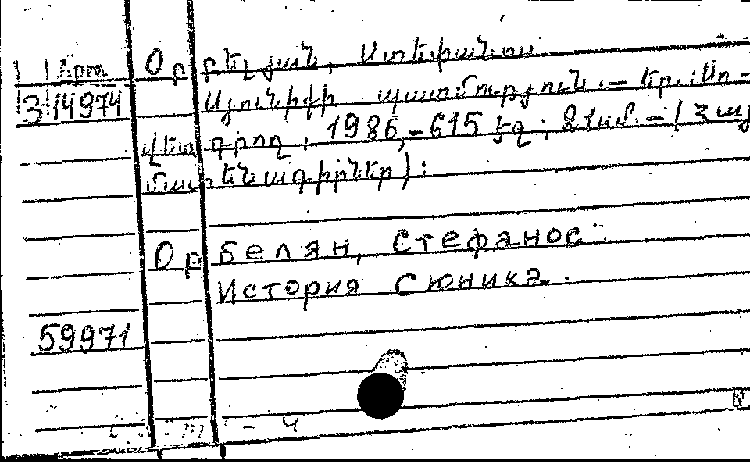 Օրբելյան, Ստեփանոս.
314974 Սյունիքի պատմություն .— Եր.: Սո-
վետ. գրող, 1986,-615 էջ; ՁՀամ.-(Հայ
մատենագիրներ):
Орбелян, Степанос.
История Сюника.
59971